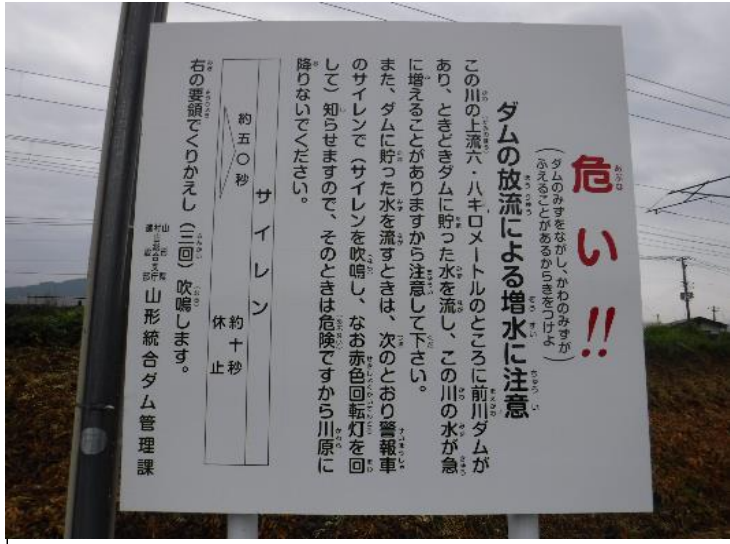 危い!!
(ダムのみずをながし、かわのみずが
ふえることがあるからきをつけよ)
ダムの放流による増水に注意
この川の上流六・八キロメートルのところに前川ダムが
あり、ときどきダムに貯った水を流し、この川の水が急
に増えることがありますから注意して下さい。
また、ダムに貯った水を流すときは、次のとおり警報車
のサイレンで(サイレンを吹鳴し、なお赤色回転灯を回
して)知らせますので、そのときは危険ですから川原に
降りないでください。
サイレン
約五〇秒
約十秒
休止
右の要領でくりかえし(三回)吹鳴します。
山形統合ダム管理課